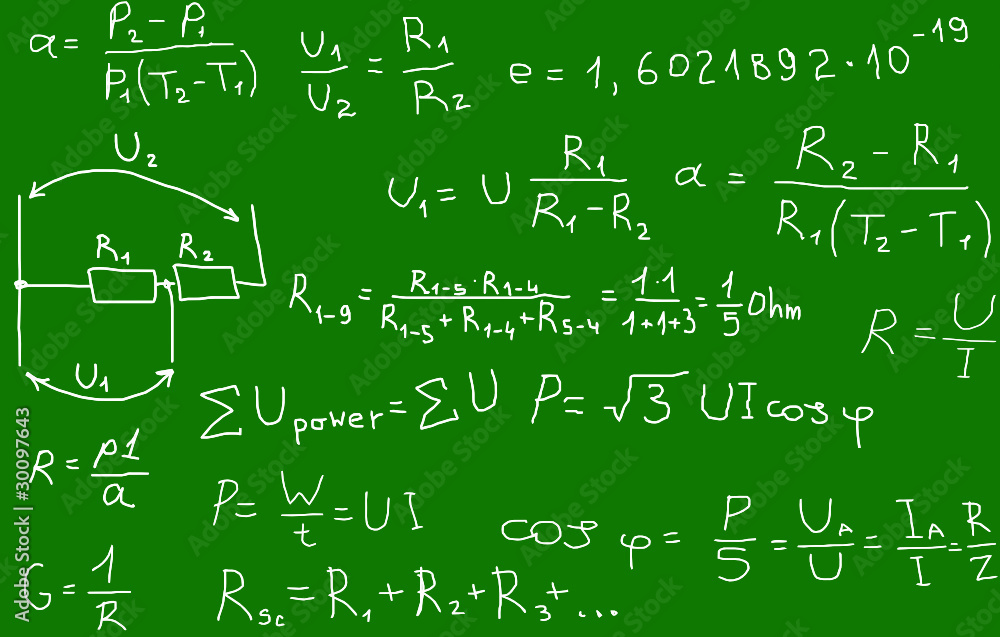 α = P₂ - P₁ / P₁(T₂ - T₁)
U₁ / U₂ = R₁ / R₂
e = 1,6021892·10⁻¹⁹
U₂
U₁ = U R₁ / R₁ - R₂
α = R₂ - R₁ / R₁(T₂ - T₁)
R₁ R₂
R₁₋₉ = R₁₋₅ · R₁₋₄ / R₁₋₅ + R₁₋₄ + R₅₋₄ = 1·1 / 1+1+3 = 1/5 Ohm
R = U / I
U₁
∑U power = ∑U
P = √3 UI cos φ
R = ρ1 / a
P = W / t = UI
cos φ = P / 5 = U_A / U = I_A / I = R / Z
G = 1 / R
R_sc = R₁ + R₂ + R₃ + ...
Adobe Stock | #30097643
Adobe Stock